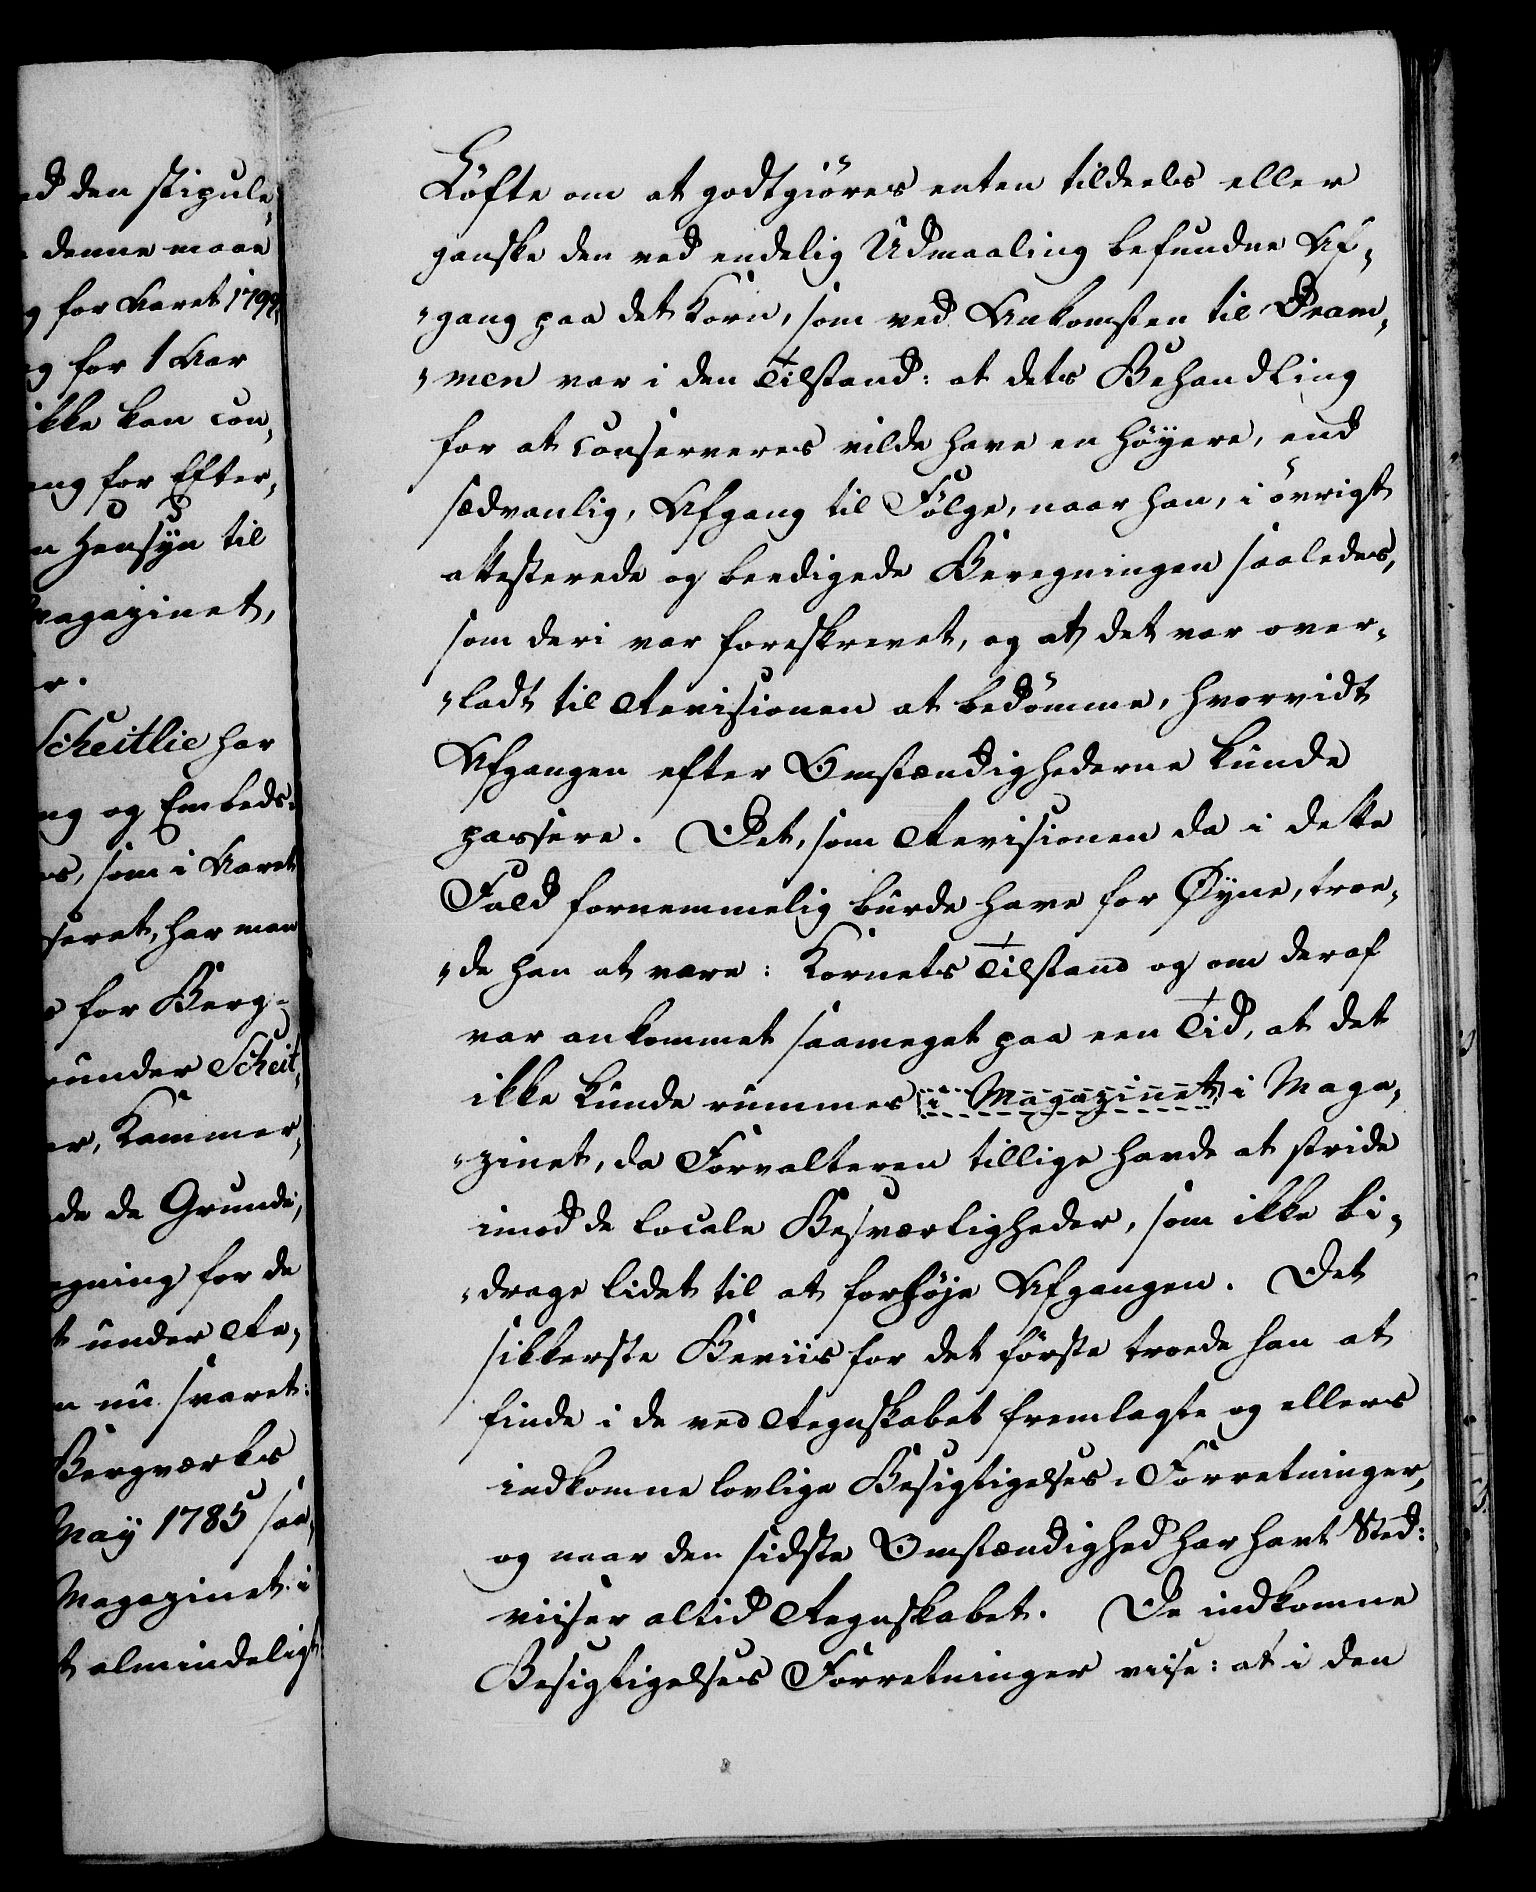 d den stipule,
denne maae
g for Aaret 1799,
g for 1 Aar
ikke kan con,
ng for Efter,
n Hensyn til
Magazinet,
r.
Scheitlie har
ng og Embeds-
s, som i Aaret
seret, har man
s for Berg-
under Scheit,
er, Kammer,
de de Grunde,
egning for de
t under Re,
n nu svaret:
Bergværks
May 1785 saa,
Magazinet i
t almindeligt
Löfte om at godtgiöres enten tildeels eller
ganske den ved endelig Udmaaling befundne Af,
„gang paa det Korn, som ved Ankomsten til Dram,
„men var i den Tilstand: at dets Behandling
for at conserveres vilde have en höyere, end
sædvanlig, Afgang til Fölge, naar han, i övrigt
attesterede og beedigede Beregningen saaledes,
som deri var foreskrevet, og at det var over,
„ladt til Revisionen at bedömme, hvorvidt
Afgangen efter Omstændighederne kunde
passere. Det, som Revisionen da i dette
Fald fornemmelig burde have for Øyne, troe,
„de han at være: Kornets Tilstand og om deraf
var ankommet saameget paa een Tid, at det
ikke kunde rummes i Magazinet i Maga,
„zinet, da Forvalteren tillige havde at stride
imod de locale Besværligheder, som ikke bi,
„drage lidet til at forhöje Afgangen. Det
sikkerste Beviis for det förste troede han at
finde i de ved Regnskabet fremlagte og ellers
indkomne lovlige Besigtigelses-Forretninger,
og naar den sidste Omstændighed har havt Sted:
viiser altid Regnskabet. De indkomne
Besigtigelses Forretninger viise: at i den